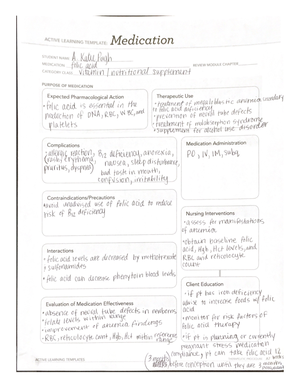 ACTIVE LEARNING TEMPLATE: Medication
STUDENT NAME
MEDICATION folic acid
REVIEW MODULE CHAPTER
CATEGORY CLASS vitamin/nutritional supplement
PURPOSE OF MEDICATION
Expected Pharmacological Action
folic acid is essential in the
production of DNA, RBC, WBC, and
platelets
Therapeutic Use
treatment of megaloblastic anemia secondary
to folic acid deficiency
prevention of neural tube defects
treatment of malabsorption syndrome
supplement for alcohol use disorder
Complications
allergic reaction, B12 deficiency, anorexia,
(rash, erythema, nausea, sleep disturbance,
pruritus, dyspnea) bad taste in mouth,
confusion, irritability
Medication Administration
PO, IV, IM, subq
Contraindications/Precautions
avoid irrational use of folic acid to reduce
risk of B12 deficiency
Nursing Interventions
assess for manifestations
of anemia
obtain baseline folic
acid, Hgb, Hct levels, and
RBC and reticulocyte
count
Interactions
folic acid levels are decreased by methotrexate
& sulfonamides
folic acid can decrease phenytoin blood levels
Client Education
if pt has iron deficiency
advise to increase foods w/ folic
acid
monitor for risk factors of
folic acid therapy
if pt is planning or currently
pregnant stress medication
compliance, pt can take folic acid
Evaluation of Medication Effectiveness
absence of neural tube defects in newborns
folate levels within range
improvement of anemia findings
RBC, reticulocyte count, Hgb, Hct within
range
ACTIVE LEARNING TEMPLATES
3 months
before conception until they are